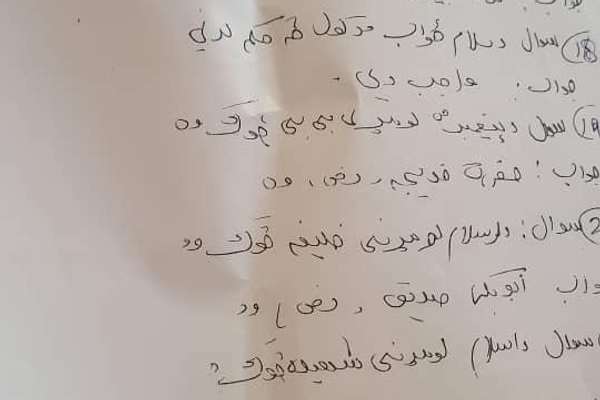 جواب:
18) سوال دسلام ځواب ورکول څه حکم لري
جواب: واجب دی.
19) سوال دپیغمبر ص لومړی بی بی څوک وه
جواب: حضرت خدیجه (رض) وه
2 سوال: داسلام لومړنی خلیفه څوک وو
واب ابوبکر صدیق (رض) وو
سوال داسلام لومړنی شهیده څوک؟